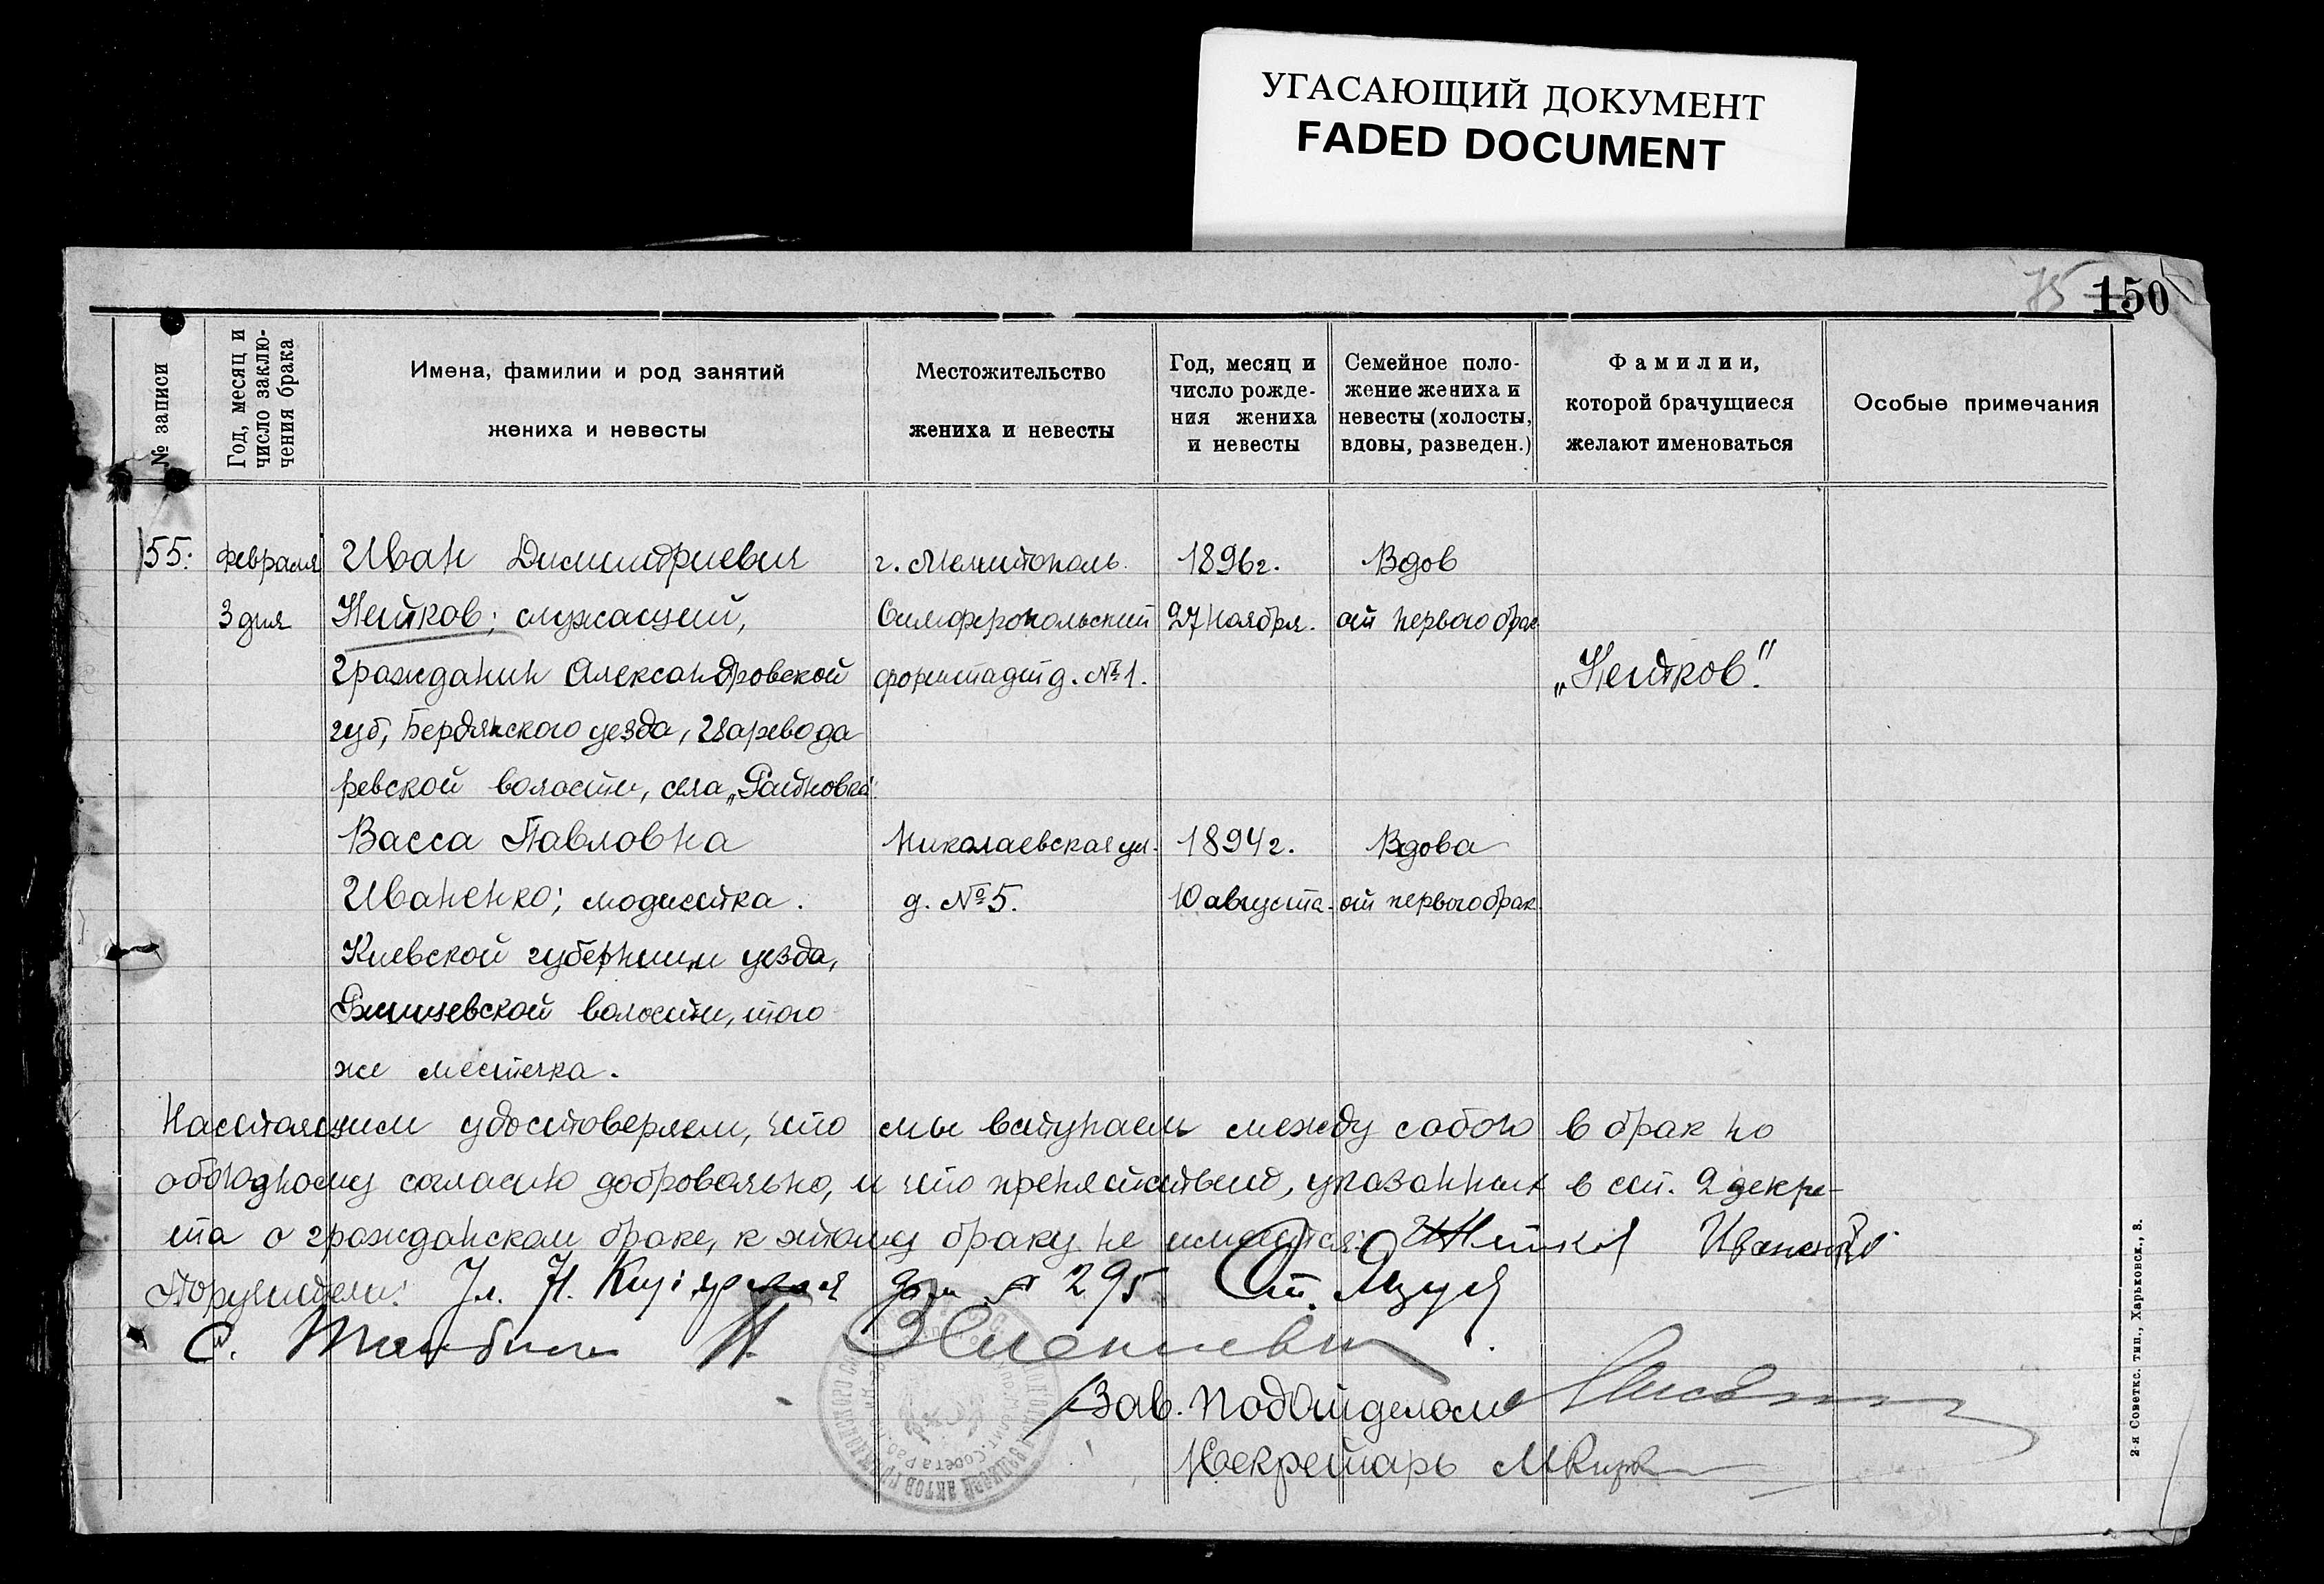 УГАСАЮЩИЙ ДОКУМЕНТ
FADED DOCUMENT
75 150
№ записи
Год, месяц и
число заклю-
чения брака
Имена, фамилии и род занятий
жениха и невесты
Местожительство
жениха и невесты
Год, месяц и
число рожде-
ния жениха
и невесты
Семейное поло-
жение жениха и
невесты (холосты,
вдовы, разведен.)
Фамилии,
которой брачущиеся
желают именоваться
Особые примечания
55.
февраля
3 дня
Иван Димитриевич
Нейков; служащий,
гражданин Александровской
губ, Бердянского уезда, Царевода
ревской волости, села „Райновка“.
г. Мелитополь.
Симферопольский
форштадт д. №1.
1896г.
27 ноября.
Вдов
от первого брак
„Нейков“.
Васса Павловна
Иваненко; модистка.
Киевской губернии, и уезда,
Ржищевской волости, того
же местечка.
Николаевская ул.
д. №5.
1894г.
10 августа.
Вдова
от первого брак
Настоящим удостоверяем, что мы вступаем между собою в брак по
обоюдному согласию добровольно, и что препятствий, указанных в ст. 2 декре-
та о гражданском браке, к этому браку не имеется:
Поручители: Ул. дом № 295
Зав. Подотделом
Секретарь
2-я Советск. тип., Харьковск., 8.